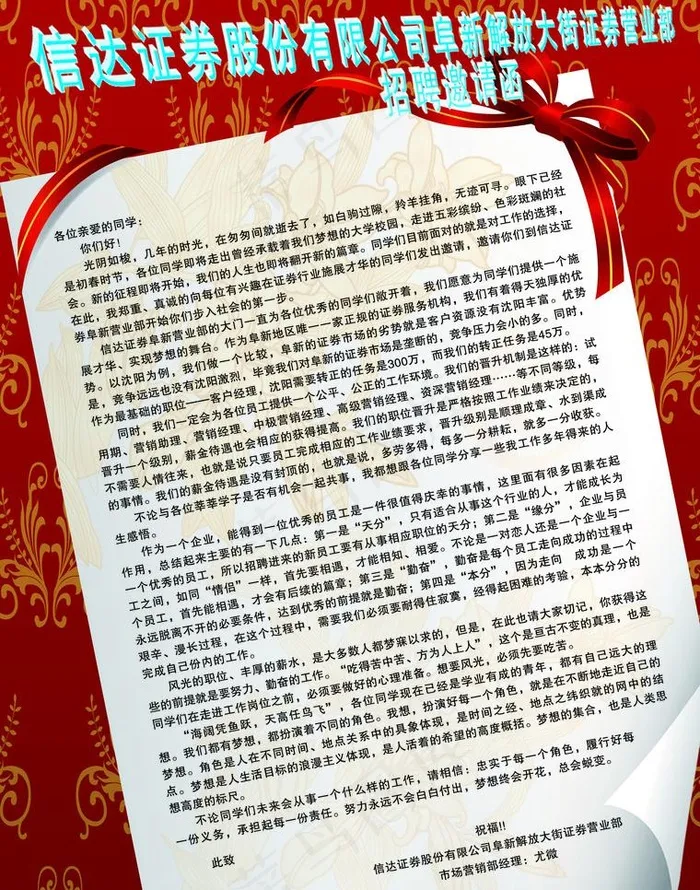 信达证券股份有限公司阜新解放大街证券营业部
招聘邀请函
各位亲爱的同学:
你们好!
光阴如梭,几年的时光,在匆匆间就逝去了,如白驹过隙,羚羊挂角,无迹可寻。眼下已经
是初春时节,各位同学即将走出曾经承载着我们梦想的大学校园,走进五彩缤纷、色彩斑斓的社
会。新的征程即将开始,我们的人生也即将翻开新的篇章。同学们目前面对的就是对工作的选择,
在此,我郑重、真诚的向每位有兴趣在证券行业施展才华的同学们发出邀请,邀请你们到信达证
券阜新营业部开始你们步入社会的第一步。
信达证券阜新营业部的大门一直为各位优秀的同学们敞开着,我们愿意为同学们提供一个施
展才华、实现梦想的舞台。作为阜新地区唯一一家正规的证券服务机构,我们有着得天独厚的优
势。以沈阳为例,我们做一个比较,阜新的证券市场的劣势就是客户资源没有沈阳丰富。优势
是,竞争远远也没有沈阳激烈,毕竟我们对阜新的证券市场是垄断的,竞争压力会小的多。同时,
作为最基础的职位——客户经理,沈阳需要转正的任务是300万,而我们的转正任务是45万。
同时,我们一定会为各位员工提供一个公平、公正的工作环境。我们的晋升机制是这样的:试
用期、营销助理、营销经理、中极营销经理、高级营销经理、资深营销经理……等不同等级,每
晋升一个级别,薪金待遇也会相应的获得提高。我们的职位晋升是严格按照工作业绩来决定的,
不需要人情往来,也就是说只要员工完成相应的工作业绩要求,晋升级别是顺理成章、水到渠成
的事情。我们的薪金待遇是没有封顶的,也就是说,多劳多得,每多一分耕耘,就多一分收获。
不论与各位莘莘学子是否有机会一起共事,我都想跟各位同学分享一些我工作多年得来的人
生感悟。
作为一个企业,能得到一位优秀的员工是一件很值得庆幸的事情,这里面有很多因素在起
作用,总结起来主要的有一下几点:第一是“天分”,只有适合从事这个行业的人,才能成为
一个优秀的员工,所以招聘进来的新员工要有从事相应职位的天分;第二是“缘分”,企业与员
工之间,如同“情侣”一样,首先要相遇,才能相知、相爱。不论是一对恋人还是一个企业与一
个员工,首先能相遇,才会有后续的篇章;第三是“勤奋”,勤奋是每个员工走向成功的过程中
永远脱离不开的必要条件,达到优秀的前提就是勤奋;第四是“本分”,因为走向 成功是一个
艰辛、漫长过程,在这个过程中,需要我们必须要耐得住寂寞,经得起困难的考验,本本分分的
完成自己份内的工作。
风光的职位、丰厚的薪水,是大多数人都梦寐以求的,但是,在此也请大家切记,你获得这
些的前提就是要努力、勤奋的工作。“吃得苦中苦、方为人上人”,这个是亘古不变的真理,也是
同学们在走进工作岗位之前,必须要做好的心理准备。想要风光,必须先要吃苦。
“海阔凭鱼跃,天高任鸟飞”,各位同学现在已经是学业有成的青年,都有自己远大的理
想。我们都有梦想,都扮演着不同的角色。我想,扮演好每一个角色,就是在不断地走近自己的
梦想。角色是人在不同时间、地点关系中的具象体现,是时间之经、地点之纬织就的网中的结
点。梦想是人生活目标的浪漫主义体现,是人活着的希望的高度概括。梦想的集合,也是人类思
想高度的标尺。
不论同学们未来会从事一个什么样的工作,请相信:忠实于每一个角色,履行好每
一份义务,承担起每一份责任。努力永远不会白白付出,梦想终会开花,总会蜕变。
此致
祝福!!
信达证券股份有限公司阜新解放大街证券营业部
市场营销部经理:尤微